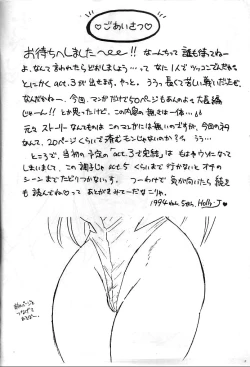 ♡ごあいさつ♡
お待ちへしましたへee!! なーんちって 誰も待ってねー
よ、なんて言われたらどおしましょう…って なに1人でツッコんでんだか
とにかく act.3 が出ます。やっと。ううっ長くて苦しい戦いだったぜ。
なんだかねー、今回、マンガだけで50ページもあんのよっ大長編
じゃーん!! とか思ったけど、この内容の無さは一体…
元々ストーリーなんてものは このマンガには無いのですが、今回のネタ
なんて、20ページくらいで済むモンじゃないのか?? うう…
ところで、当初の予定の「act.3で完結」は もはやウソになって
しまいまして、この調子じゃ act.5 くらいまで行かないと オチの
シーンまでたどりつかないっす。 つーわけで 気が向いたら続き
も読んでね♡って あとがきみてーだなこりゃ。
Holly-J ♥